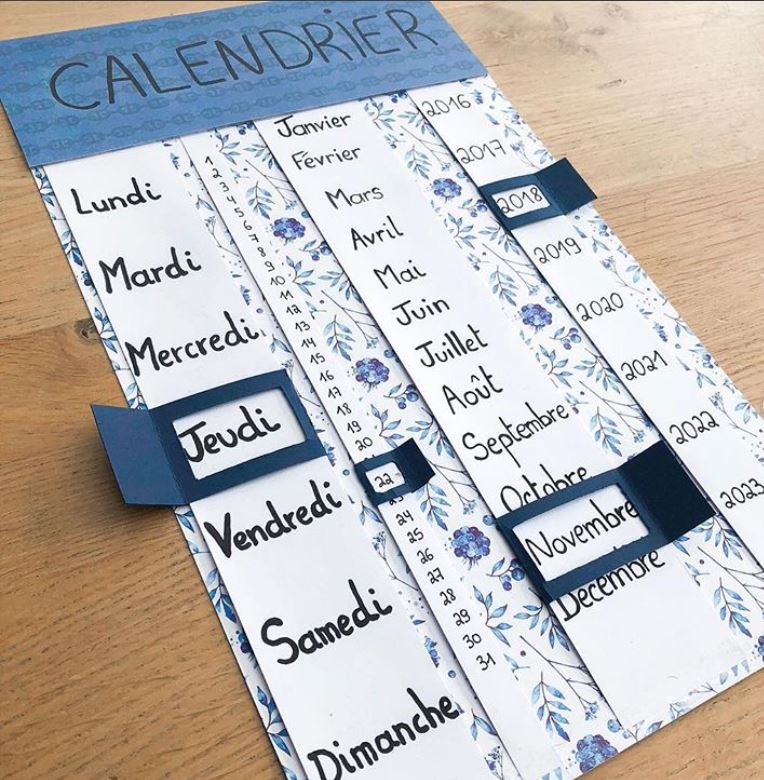 CALENDRIER
Lundi
Mardi
Mercredi
Jeudi
Vendredi
Samedi
Dimanche
1
2
3
4
5
6
7
8
9
10
11
12
13
14
15
16
17
18
19
20
22
23
24
25
26
27
28
29
30
31
Janvier
Février
Mars
Avril
Mai
Juin
Juillet
Août
Septembre
Octobre
Novembre
Décembre
2016
2017
2018
2019
2020
2021
2022
2023